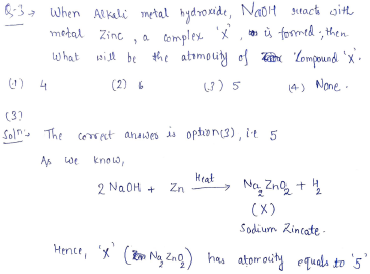 Q-3 → When Alkali metal hydroxide, NaOH reacts with
metal Zinc, a complex 'X', is formed, then
What will be the atomosity of Compound 'X'.
(1) 4 (2) 6 (3) 5 (4) None.
(3)
Solⁿ: The correct answer is option(3), i.e 5
As we know,
2 NaOH + Zn Heat→ Na₂ZnO₂ + H₂
(X)
Sodium Zincate.
Hence, 'X' (Na₂ZnO₂) has atomosity equals to '5'